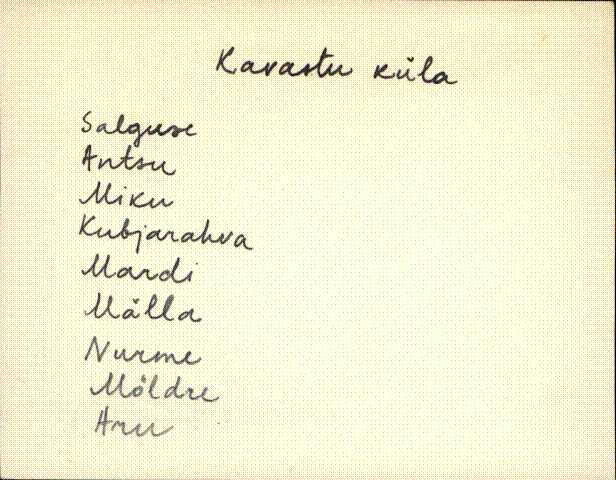 Kavastu küla
Salguse
Antsu
Miku
Kubjarahva
Mardi
Mälla
Nurme
Möldre
Aru